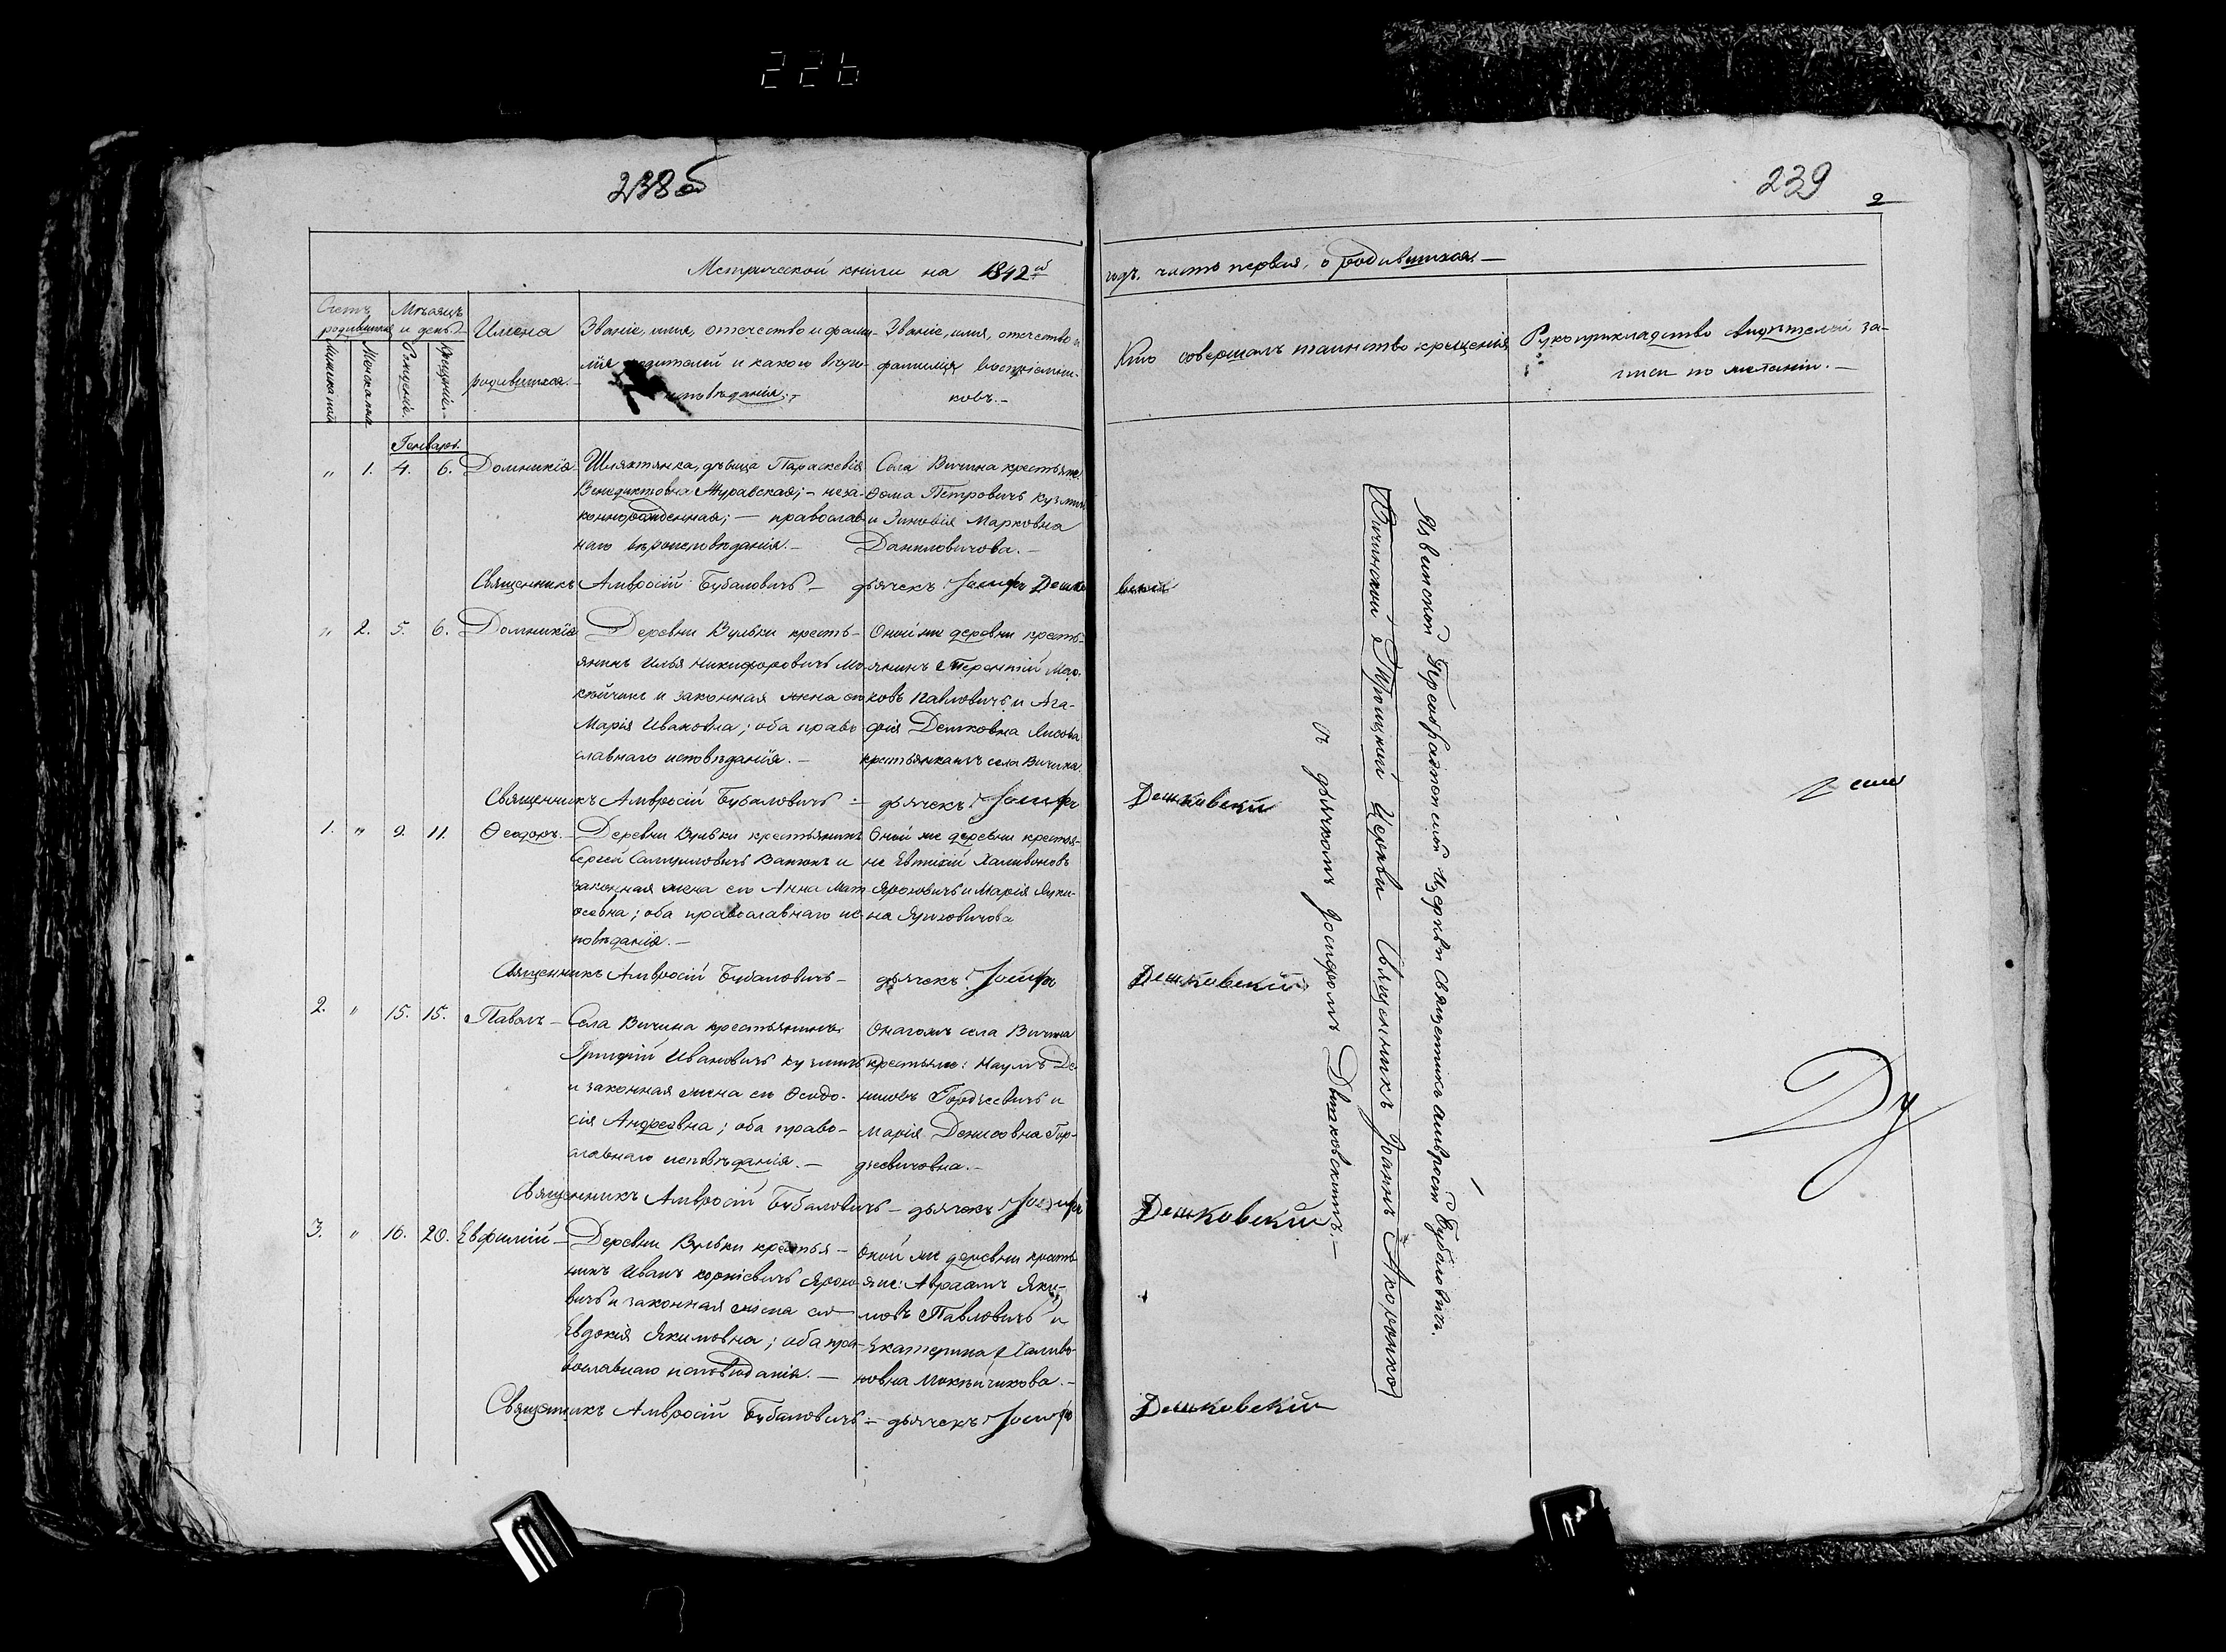 226
238б
239
2
Метрической книги на 1842й
годъ, часть первая, о родившихся.—
Счетъ родившихся
Мѣсяцъ и день.
Имена
родившихся.
Званіе, имя, отечество и фами-
лія родителей и какого вѣро-
исповѣданія.
Званіе, имя, отечество и
фамилія воспріемни-
ковъ.—
Кто совершалъ таинство крещенія
Рукоприкладство свидѣтелей за-
писи по желанію.—
Мужескаго
Женскаго
Рожденія.
Крещенія.
Генварь.
" 1. 4. 6. Домникія
Шляхтянка, дѣвица Параскевія
Венедиктовна Журавская;— неза-
коннорожденная;— православ-
наго вѣроисповѣданія.—
Села Вичина крестьяне
Ѳома Петровичъ Кузмичъ
и Зиновія Марковна
Даниловичова.—
Священникъ Амвросій Бубаловичъ— дьячекъ Іосифъ Дешковскій
" 2. 5. 6. Домникія
Деревни Вульки кресть-
янинъ Илья Никифоровичъ Мо-
кѣйчикъ и законная жена его
Марія Ивановна; оба право-
славнаго исповѣданія.—
Оной же деревни кресть-
янинъ Терентій Мар-
ковъ Павловичъ и Ага-
фія Демковна Лисова
крестьянка села Вичина.
Священникъ Амвросій Бубаловичъ— дьячекъ Іосифъ Дешковскій
1. " 9. 11. Ѳеодоръ.—
Деревни Вульки крестьянинъ
Сергей Самуиловичъ Ванюкъ и
законная жена его Анна Мат-
ѳеевна; оба православнаго ис-
повѣданія.—
Оной же деревни крестья-
не Евтихій Халимоновъ
Ярошовичъ и Марія Яки-
на Ярошовичова
Священникъ Амвросій Бубаловичъ— дьячекъ Іосифъ Дешковскій
2. " 15. 15. Павелъ—
Села Вичина крестьянинъ
Григорій Ивановичъ Кузмичъ
и законная жена его Ѳеодо-
сія Андреевна; оба право-
славнаго исповѣданія.—
Онагожъ села Вичина
крестьяне: Наумъ Де-
нисовъ Гордѣевичъ и
Марія Денисовна Гор-
дѣевичовна.—
Священникъ Амвросій Бубаловичъ— дьячекъ Іосифъ Дешковскій
3. " 16. 20. Евфимій—
Деревни Вульки крестья-
нинъ Иванъ Корніевичъ Ярошо-
вичъ и законная жена его
Евдокія Якимовна; оба пра-
вославнаго исповѣданія.—
Оной же деревни кресть-
яне: Авраамъ Яки-
мовъ Павловичъ и
Екатерина Халимо-
новна Мокѣйчикова.—
Священникъ Амвросій Бубаловичъ— дьячекъ Іосифъ Дешковскій
Преображенской церкви священникъ Амвросій Бубаловичъ.
Вичинской Троицкой Церкви Священникъ Іоаннъ
съ дьячкомъ Іосифомъ Дешковскимъ.—